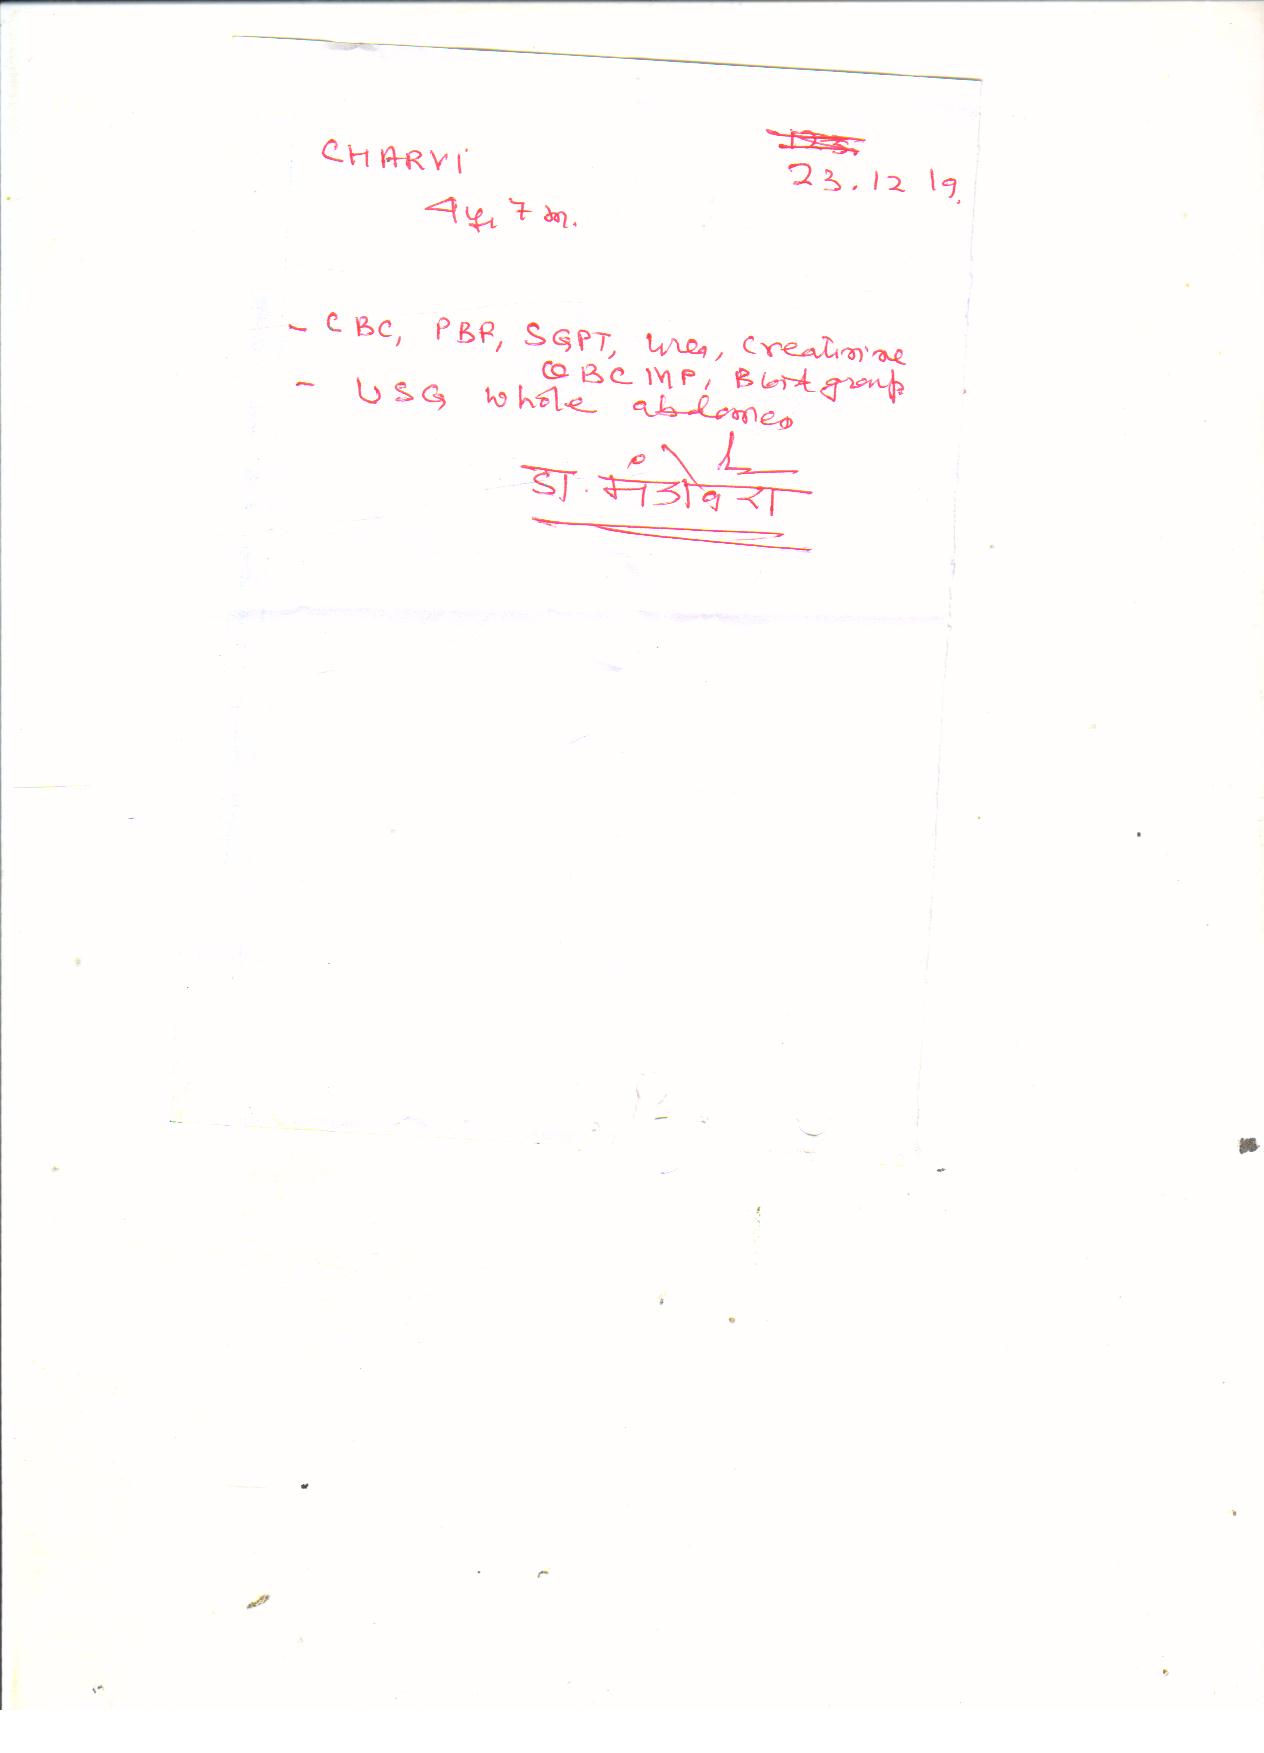 CHARVI
23.12 19.
4 yr 7 m.
- CBC, PBF, SGPT, Urea, Creatinine
QBC MP, Blood group
- USG whole abdomen
डा. मंडोवरा